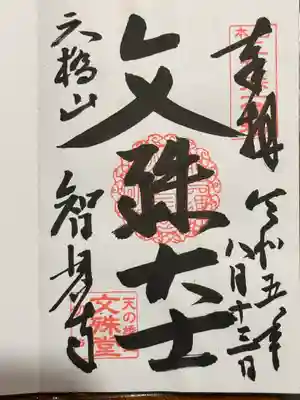 奉拝
令和五年
八月十三日
文殊大士
天橋山
智恩寺
天の橋立
文殊堂